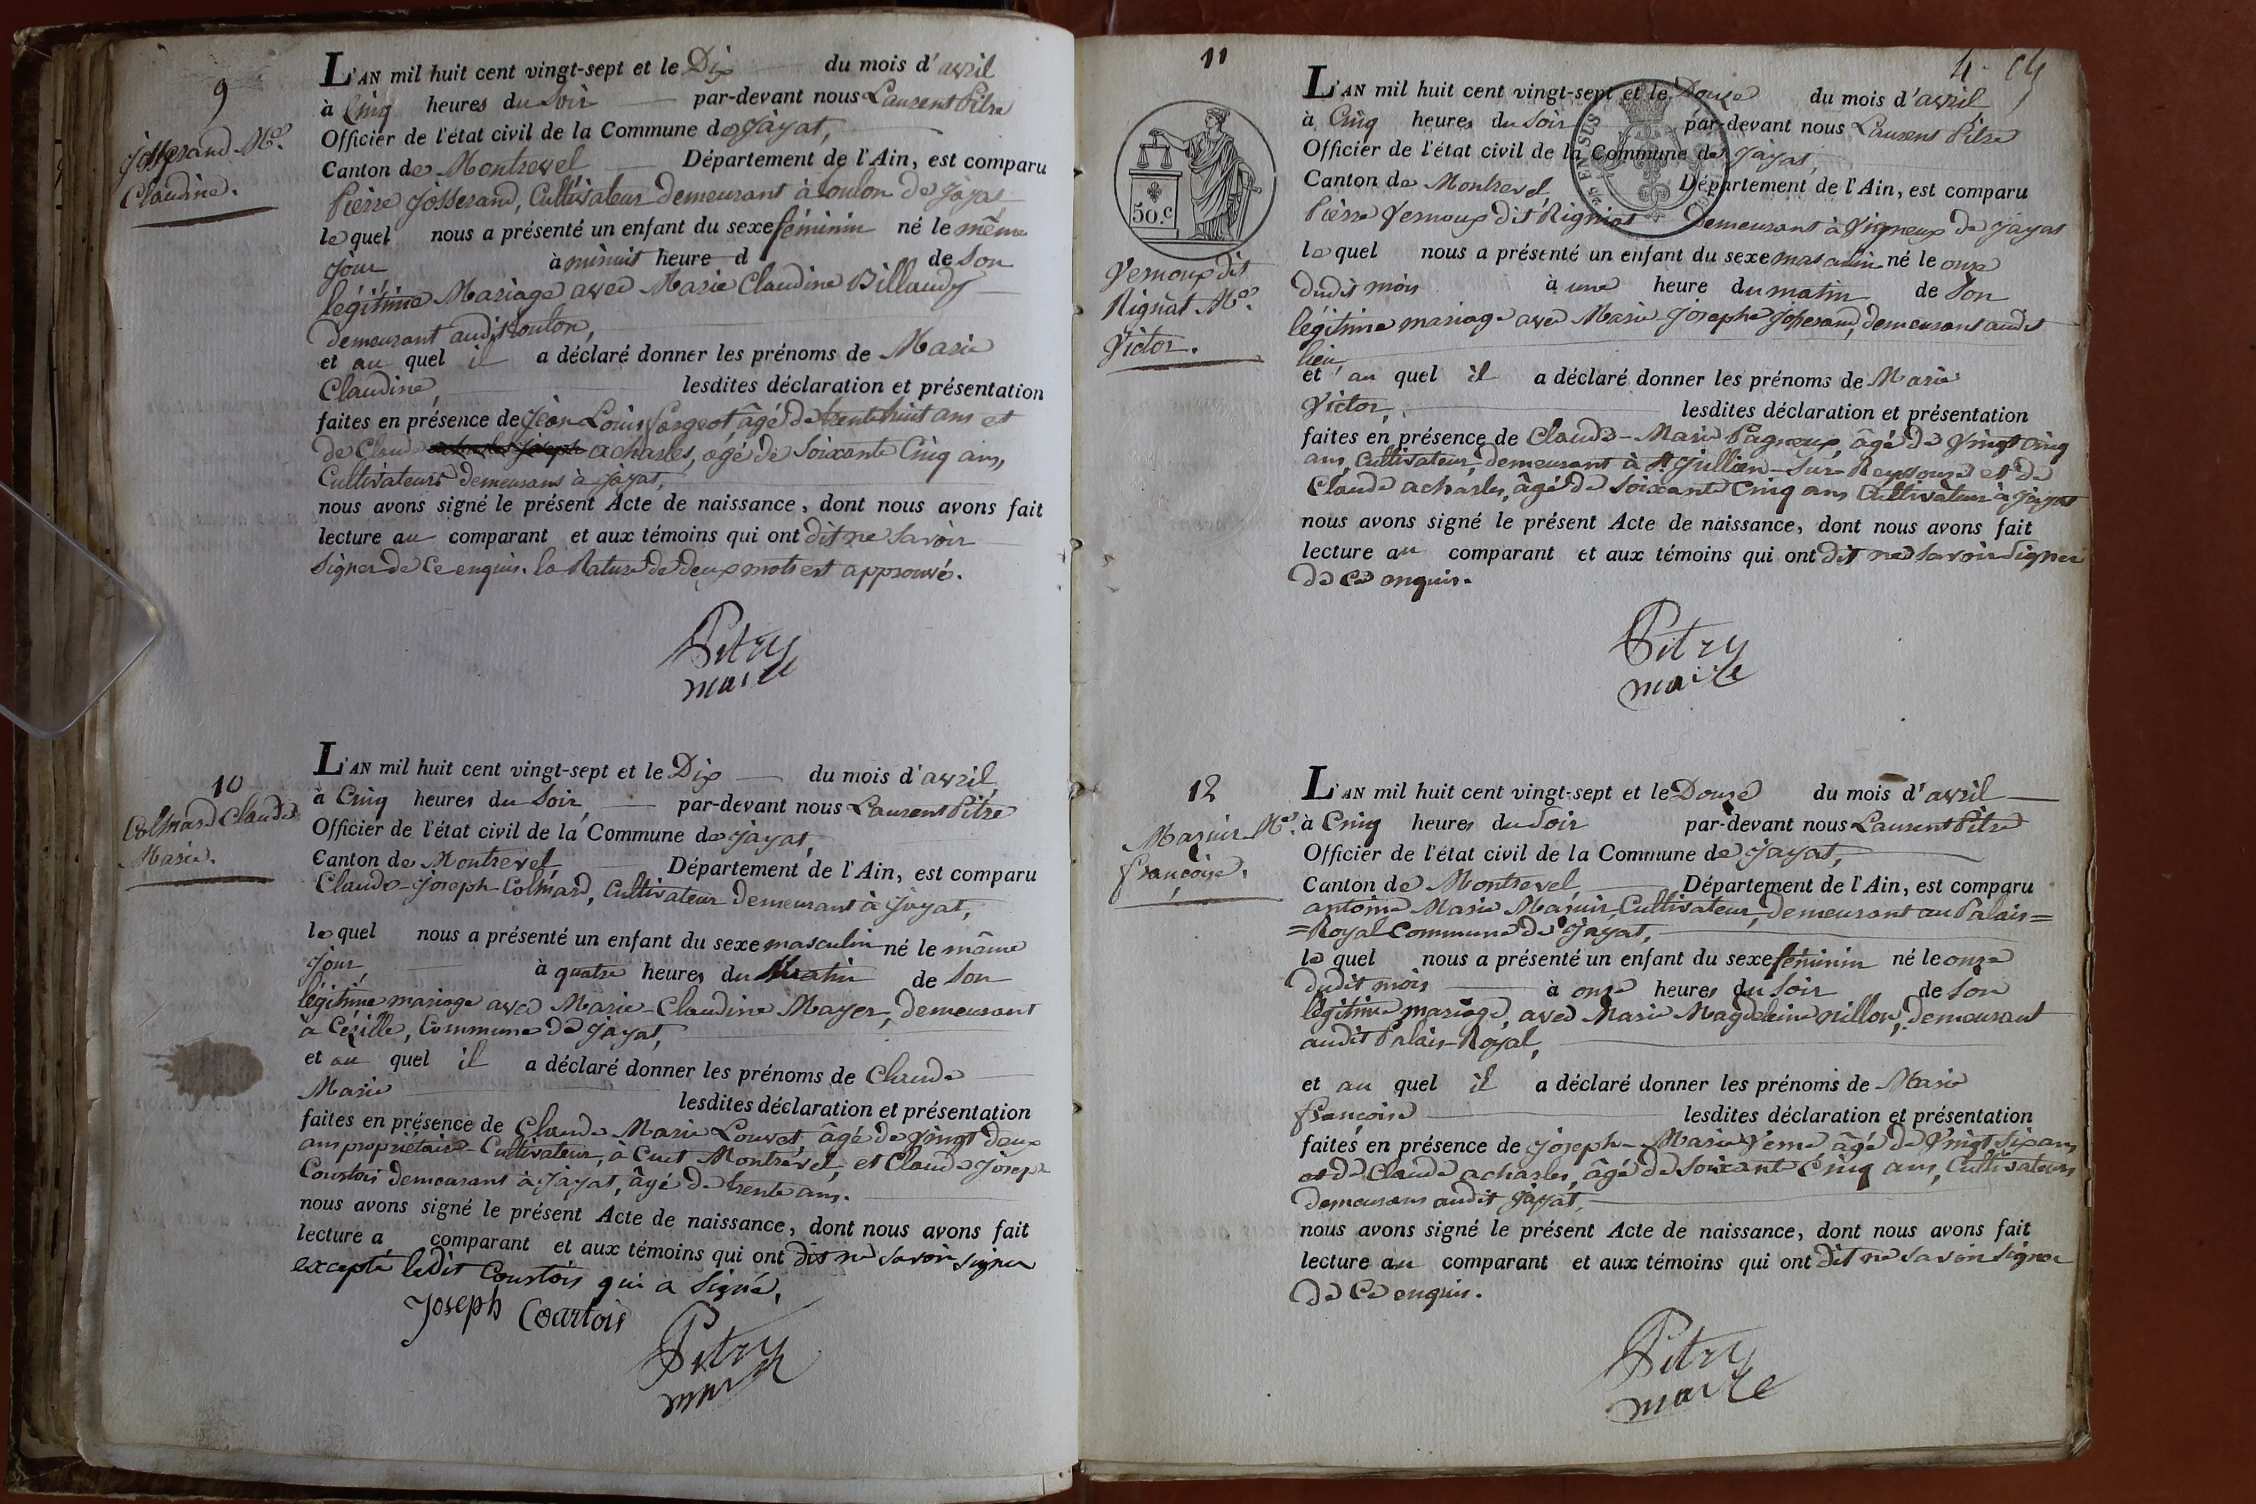 9
Josserand M.ie
Claudine.
L'AN mil huit cent vingt-sept et le Dix du mois d'avril
à Cinq heures du Soir par-devant nous Laurent Pitre
Officier de l'état civil de la Commune de Jayat,
Canton de Montrevel Département de l'Ain, est comparu
Pierre Josserand, Cultivateur demeurant à loulon de Jayat
le quel nous a présenté un enfant du sexe féminin né le même
jour à minuit heure d de Son
légitime Mariage avec Marie Claudine Billaudy
demeurant audit loulon,
et au quel il a déclaré donner les prénoms de Marie
Claudine, lesdites déclaration et présentation
faites en présence de Jean-Louis Pargeot âgé de trente huit ans et
de Claude acharles, agé de Soixante Cinq ans,
Cultivateurs demeurans à Jayat,
nous avons signé le présent Acte de naissance, dont nous avons fait
lecture au comparant et aux témoins qui ont dit ne Savoir
Signer de Ce enquis. la Rature de deux mots est approuvé.
Pitre
maire
10
Colmard Claude
Marie.
L'AN mil huit cent vingt-sept et le Dix du mois d'avril,
à Cinq heures du Soir, par-devant nous Laurent Pitre
Officier de l'état civil de la Commune de Jayat,
Canton de Montrevel Département de l'Ain, est comparu
Claude-Joseph Colmard, Cultivateur demeurant à Jayat,
le quel nous a présenté un enfant du sexe masculin né le même
jour, à quatre heures du Matin de Son
légitime mariage avec Marie-Claudine Mayer, demeurant
à Cézille, Commune de Jayat,
et au quel il a déclaré donner les prénoms de Claude
Marie lesdites déclaration et présentation
faites en présence de Claude Marie Louvet, âgé de Vingt deux
ans propriétaire-Cultivateur, à Cuet Montrevel, et Claude Joseph
Courtois demeurant à Jayat, âgé de trente ans.
nous avons signé le présent Acte de naissance, dont nous avons fait
lecture a comparant et aux témoins qui ont dit ne Savoir signer
excepté ledit Courtois qui a Signé,
Joseph Courtois
Pitre
maire
11
50.c
Vernoux dit
Rignat M.ie
Victor.
L'AN mil huit cent vingt-sept et le Douze du mois d'avril
à Cinq heures du Soir par-devant nous Laurent Pitre
Officier de l'état civil de la Commune de Jayat,
Canton de Montrevel, Département de l'Ain, est comparu
Pierre Vernoux dit Rignat demeurant à Vigneux de Jayat
le quel nous a présenté un enfant du sexe masculin né le onze
dudit mois à une heure du matin de Son
légitime mariage avec Marie Josephe Josserand, demeurant audit
lieu,
et au quel il a déclaré donner les prénoms de Marie
Victor, lesdites déclaration et présentation
faites en présence de Claude-Marie Pagneux, âgé de Vingt Cinq
ans, Cultivateur demeurant à St Jullien-Sur-Reyssouze et de
Claude acharles, âgé de Soixante Cinq ans Cultivateur à Jayat
nous avons signé le présent Acte de naissance, dont nous avons fait
lecture au comparant et aux témoins qui ont dit ne Savoir Signer
de Ce enquis.
Pitre
maire
12
Maruir M.ie
françoise.
L'AN mil huit cent vingt-sept et le Douze du mois d'avril
à Cinq heures du Soir par-devant nous Laurent Pitre
Officier de l'état civil de la Commune de Jayat,
Canton de Montrevel, Département de l'Ain, est comparu
antoine Marie Maruir, Cultivateur, demeurant au Palais=
=Royal Commune de Jayat,
le quel nous a présenté un enfant du sexe féminin né le onze
dudit mois à onze heures du Soir de Son
légitime mariage, avec Marie Magdeleine nillon, demeurant
audit Palais-Royal,
et au quel il a déclaré donner les prénoms de Marie
françoise lesdites déclaration et présentation
faites en présence de Joseph-Marie Verne âgé de Vingt Six ans
et de Claude acharles, âgé de Soixante Cinq ans, Cultivateurs
demeurans audit Jayat,
nous avons signé le présent Acte de naissance, dont nous avons fait
lecture au comparant et aux témoins qui ont dit ne Savoir Signer
de Ce enquis.
Pitre
maire